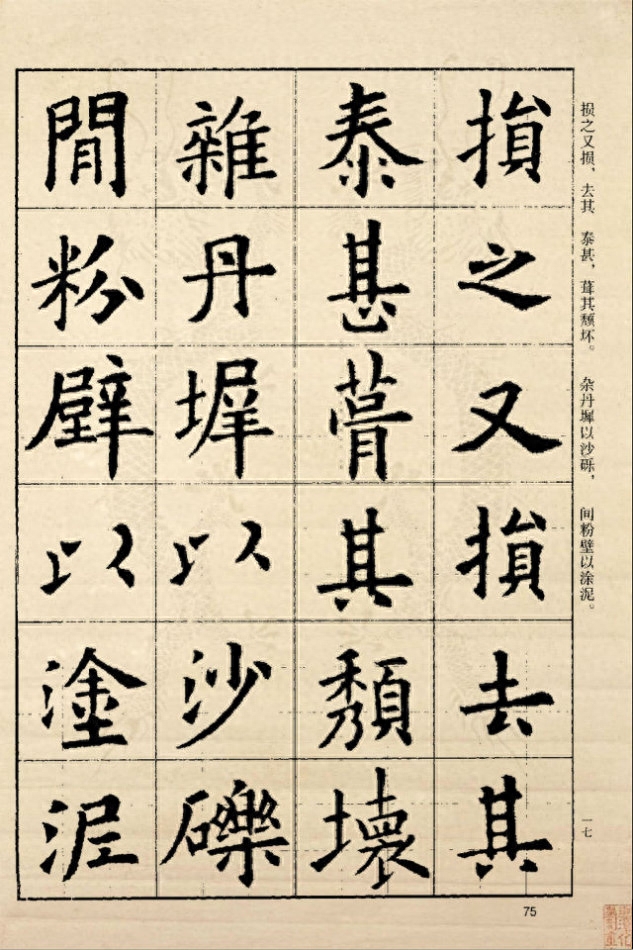 损之又损、去其　泰甚，葺其颓坏。　杂丹墀以沙砾，　间粉壁以涂泥。
一七
損之又損去其
泰甚葺其頽壞
雜丹墀以沙礫
閒粉壁以塗泥
75